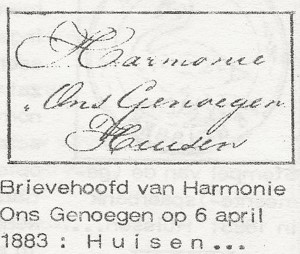 Harmonie
„Ons Genoegen
Huisen
Brievehoofd van Harmonie
Ons Genoegen op 6 april
1883 : Huisen...